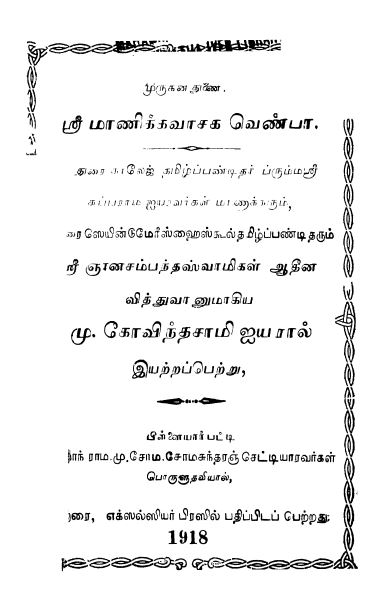 முருகன் துணை.
ஸ்ரீ மாணிக்கவாசக வெண்பா.
துரை காலேஜ் தமிழ்ப்பண்டிதர் ப்ரும்மஸ்ரீ
சுப்பராம ஐயரவர்கள் மாணாக்கரும்,
ரை ஸெயின்ட்மேரீஸ்ஹைஸ்கூல் தமிழ்ப்பண்டிதரும்
ஸ்ரீ ஞானசம்பந்தஸ்வாமிகள் ஆதீன
வித்துவானுமாகிய
மு. கோவிந்தசாமி ஐயரால்
இயற்றப்பெற்று,
பிள்ளையார்பட்டி
ராம. மு. சோம. சோமசுந்தரஞ் செட்டியாரவர்கள்
பொருளுதவியால்,
எக்ஸல்ஸியர் பிரஸில் பதிப்பிடப் பெற்றது
1918